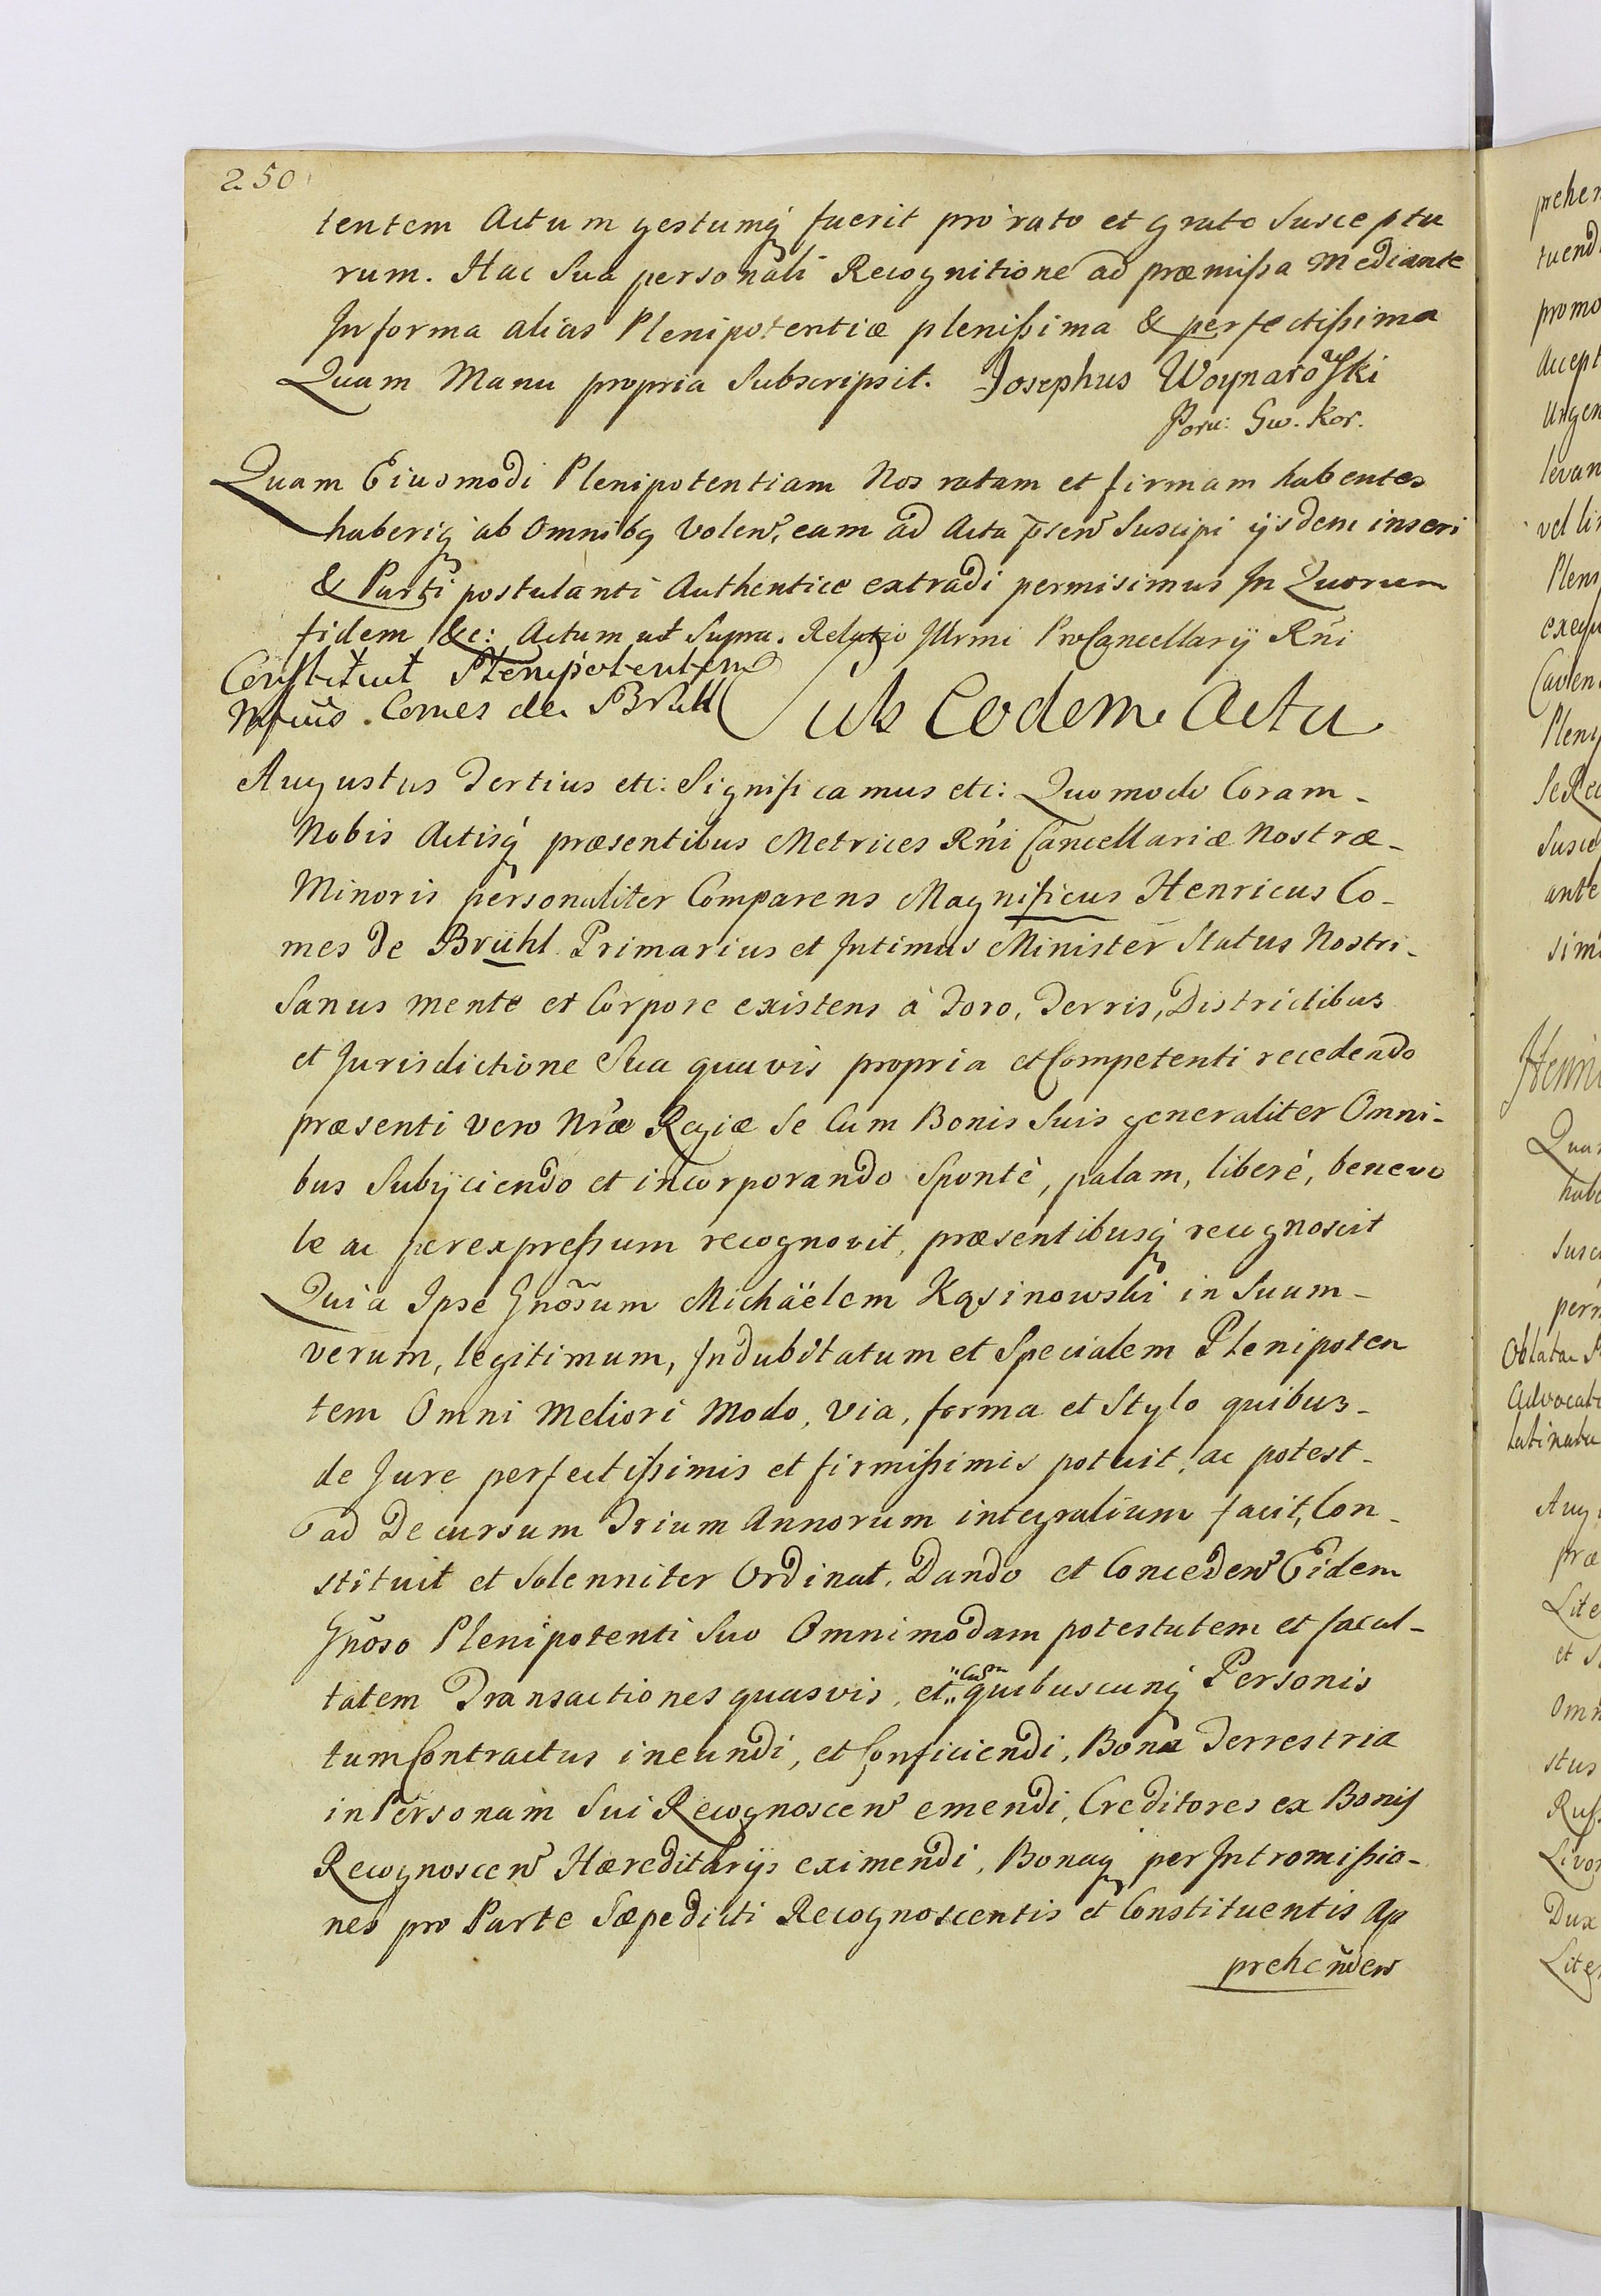 250
tentem Actum gestumq́ fuerit pro rato et grato Susceptu
rum. Hac Sua personali Recognitione ad præmissa Mediante
In forma alias Plenipotentiæ plenissima & perfectissima
Quam Manu propria Subscripsit. Josephus Woynarowski
Poru: Gw. Kor.
Quam Eiusmodi Plenipotentiam Nos ratam et firmam habentes
haberiq́ ab Omnibq volen̄, eam ad Acta p̄sen̄ Suscipi ijsdem inseri
& Parti postulanti Authentice extradi permisimus In Quorum
fidem &c: Actum ut Supra. Relatio Illrmi ProCancellarij Rn̄i
Constituit Plenipotentem
Mfcus. Comes de Brühl
Sub Eodem Actu
Augustus Tertius etc: Significamus etc: Quomodo Coram-
Nobis Actisq́ præsentibus Metrices Rn̄i Cancellariæ Nostræ-
Minoris personaliter Comparens Magnificus Henricus Co-
mes de Brühl Primarius et Intimus Minister Status Nostri-
Sanus mente et Corpore existens à Foro, Terris, Districtibus
et Jurisdictione Sua quavis propria et Competenti recedendo
præsenti vero Nr̄æ Regiæ Se Cum Bonis Suis generaliter Omni-
bus Subijciendo et incorporando Spontè, palam, liberé, benevo
le ac per expressum recognovit, præsentibusq́ recognoscit
Quia Ipse Gnõsum Michäelem Kąsinowski in Suum-
verum, legitimum, Indubitatum et Specialem Plenipoten
tem Omni Meliori Modo, via, forma et Stylo quibus-
de Jure perfectissimis et firmissimis potuit, ac potest-
ad Decursum Trium Annorum integralium facit, Con-
stituit et Solenniter Ordinat, Dando et Conceden̄ Eidem
Gnõso Plenipotenti Suo Omnimodam potestatem et facul-
tatem Transactiones quasvis, et "cum" quibuscunq́ Personis
tum Contractus ineundi, et Conficiendi, Bona Terrestria
in Personam Sui Recognoscen̄ emendi, Creditores ex Bonis
Recognoscen̄ Hæreditarijs eximendi, Bonaq́ per Intromissio-
nes pro Parte Sæpedicti Recognoscentis et Constituentis Ap
prehenden̄